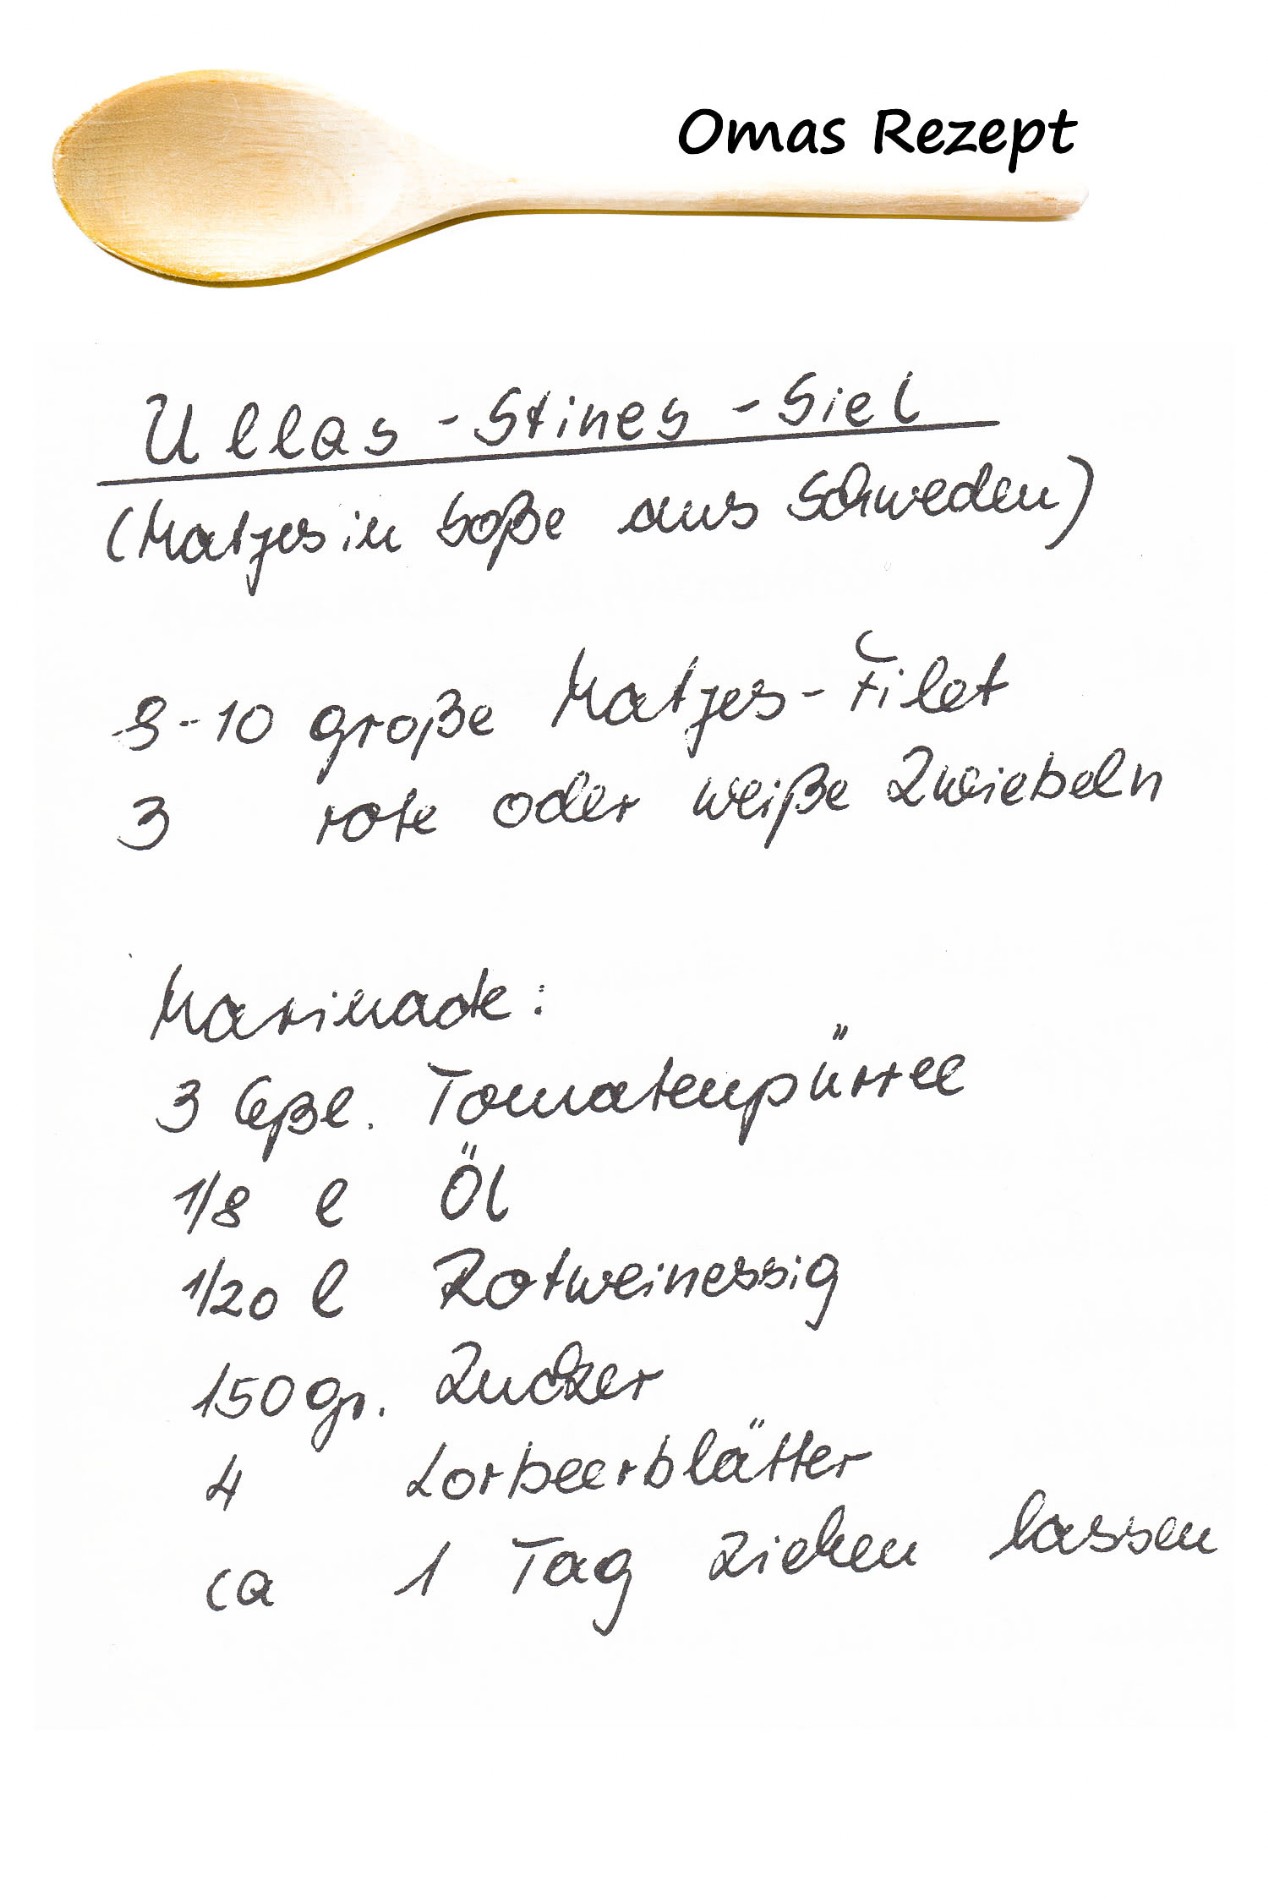 Omas Rezept
Ullas-Stines-Siel
(Matjes in Soße aus Schweden)
8-10 große Matjes-Filet
3 rote oder weiße Zwiebeln
Marinade:
3 Eßl. Tomatenpürree
1/8 l Öl
1/20 l Rotweinessig
150 gr. Zucker
4 Lorbeerblätter
ca 1 Tag ziehen lassen